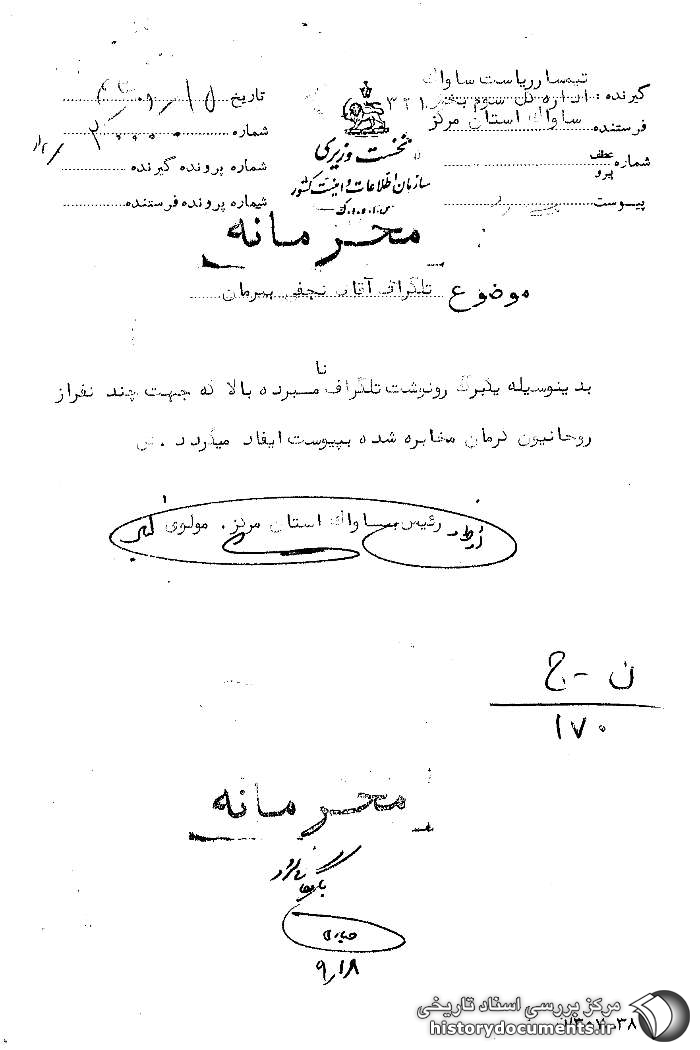 گیرنده : تیمسار ریاست ساواک
اداره کل سوم بخش ۳۲۱
فرستنده ساواک استان مرکز
شماره عطف
پیرو
پیوست
نخست وزیری
سازمان اطلاعات و امنیت کشور
س.ا.و.ا.ک
تاریخ
شماره
شماره پرونده گیرنده
شماره پرونده فرستنده
محرمانه
موضوع تلگراف آقای نجفی بکرمان
نا
بدینوسیله یکبرگ رونوشت تلگراف مبرده بالا که جهت چند نفر از
روحانیون کرمان مخابره شده بپیوست ایفاد میگردد .
رئیس ساواک استان مرکز . مولوی
ن - ج
۱۷۰
محرمانه
بایگانی گردد
۹/۱۸
مرکز بررسی اسناد تاریخی
historydocuments.ir